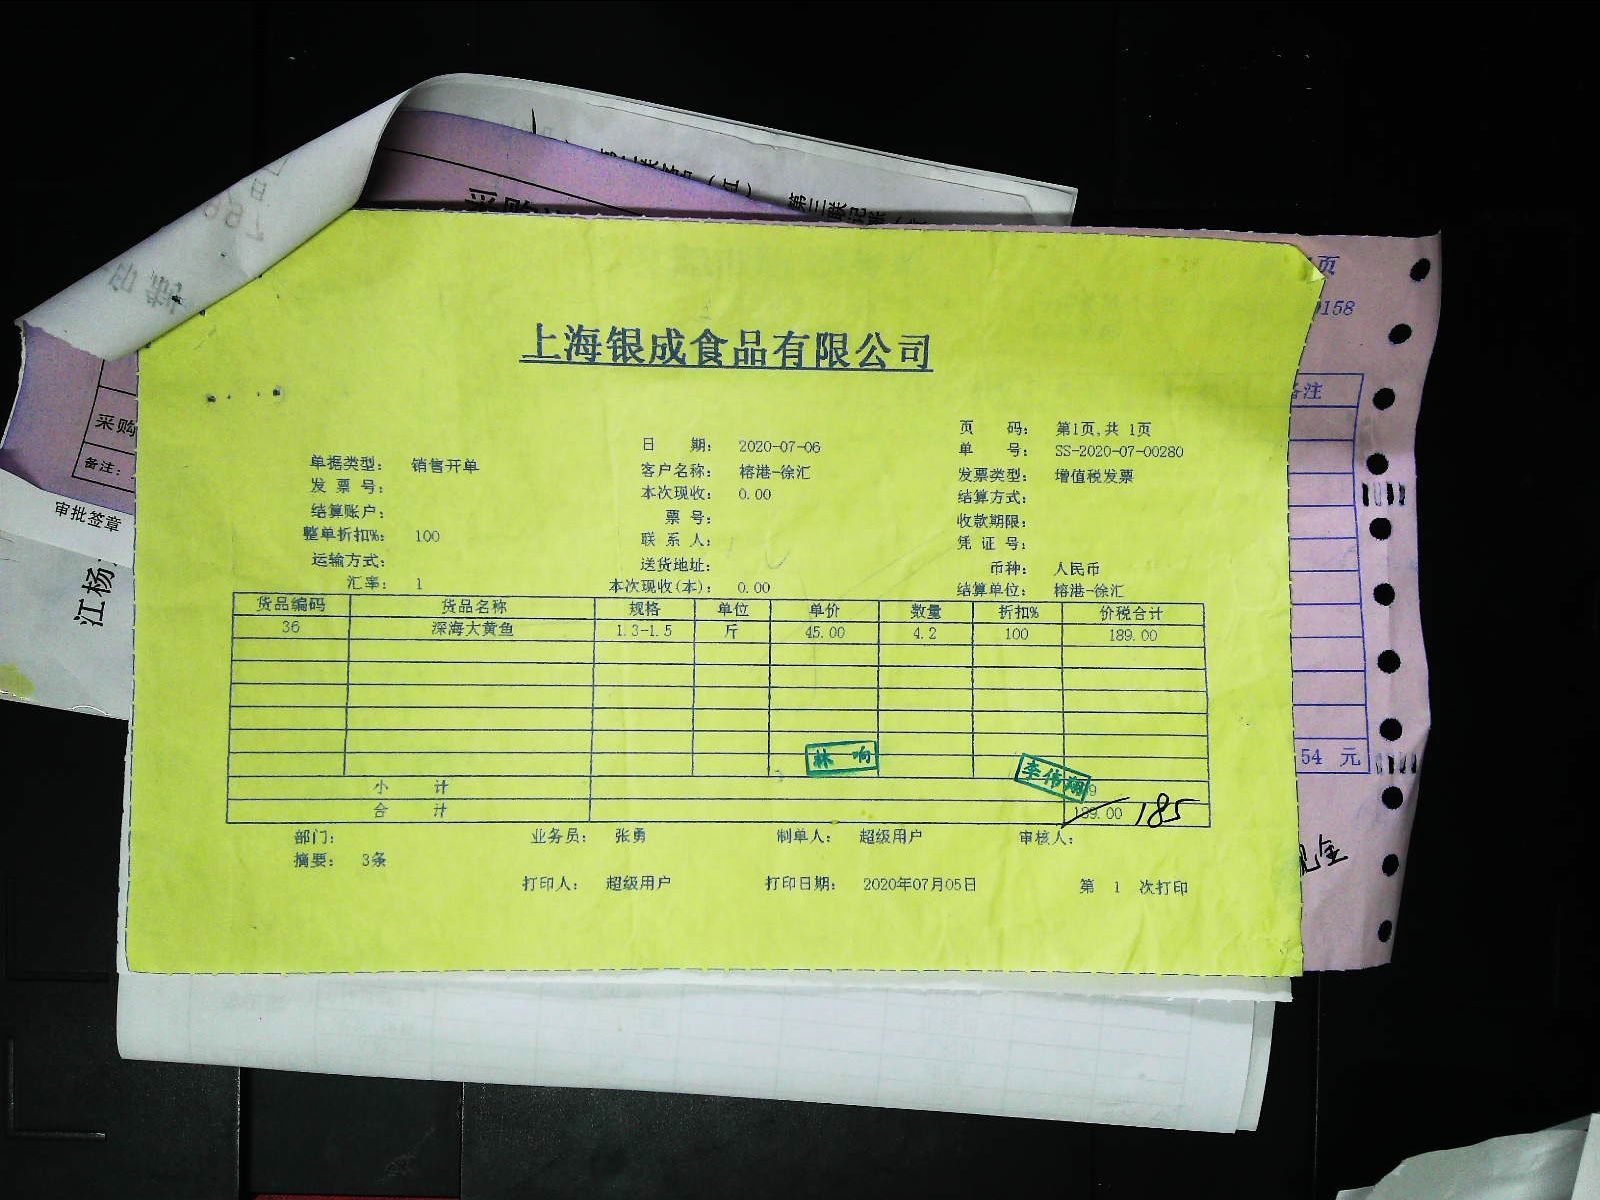 第三联记账
1页
158
上海银成食品有限公司
备注
采购
备注:
审批签章
江杨
页 码: 第1页,共 1页
日 期: 2020-07-06
单 号: SS-2020-07-00280
单据类型: 销售开单
客户名称: 榕港-徐汇
发票类型: 增值税发票
发 票 号:
本次现收: 0.00
结算方式:
结算账户:
票 号:
收款期限:
整单折扣%: 100
联 系 人:
凭 证 号:
运输方式:
送货地址:
币种: 人民币
汇率: 1
本次现收(本): 0.00
结算单位: 榕港-徐汇
货品编码 货品名称 规格 单位 单价 数量 折扣% 价税合计
36 深海大黄鱼 1.3-1.5 斤 45.00 4.2 100 189.00
林响
李伟翔
小 计
合 计 189.00 185
54 元
现金
部门: 业务员: 张勇 制单人: 超级用户 审核人:
摘要: 3条
打印人: 超级用户 打印日期: 2020年07月05日 第 1 次打印